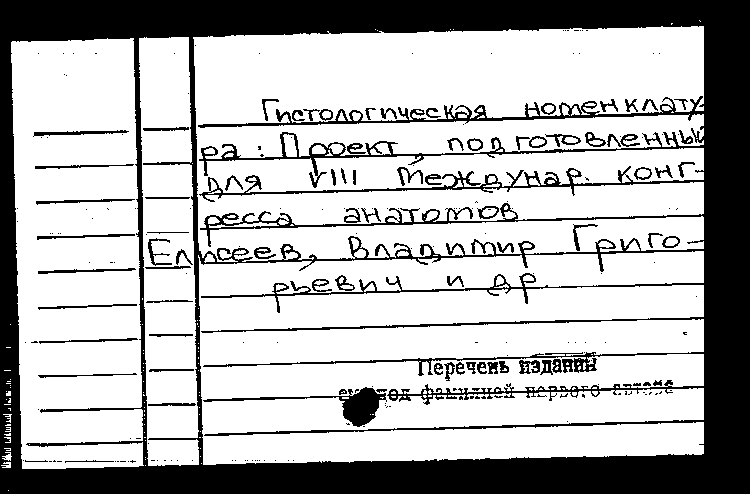 Гистологическая номенклату-
ра: Проект, подготовленный
для VIII Междунар. конг-
ресса анатомов
Елисеев, Владимир Григо-
рьевич и др.
Перечень изданий
см. под фамилией первого автора